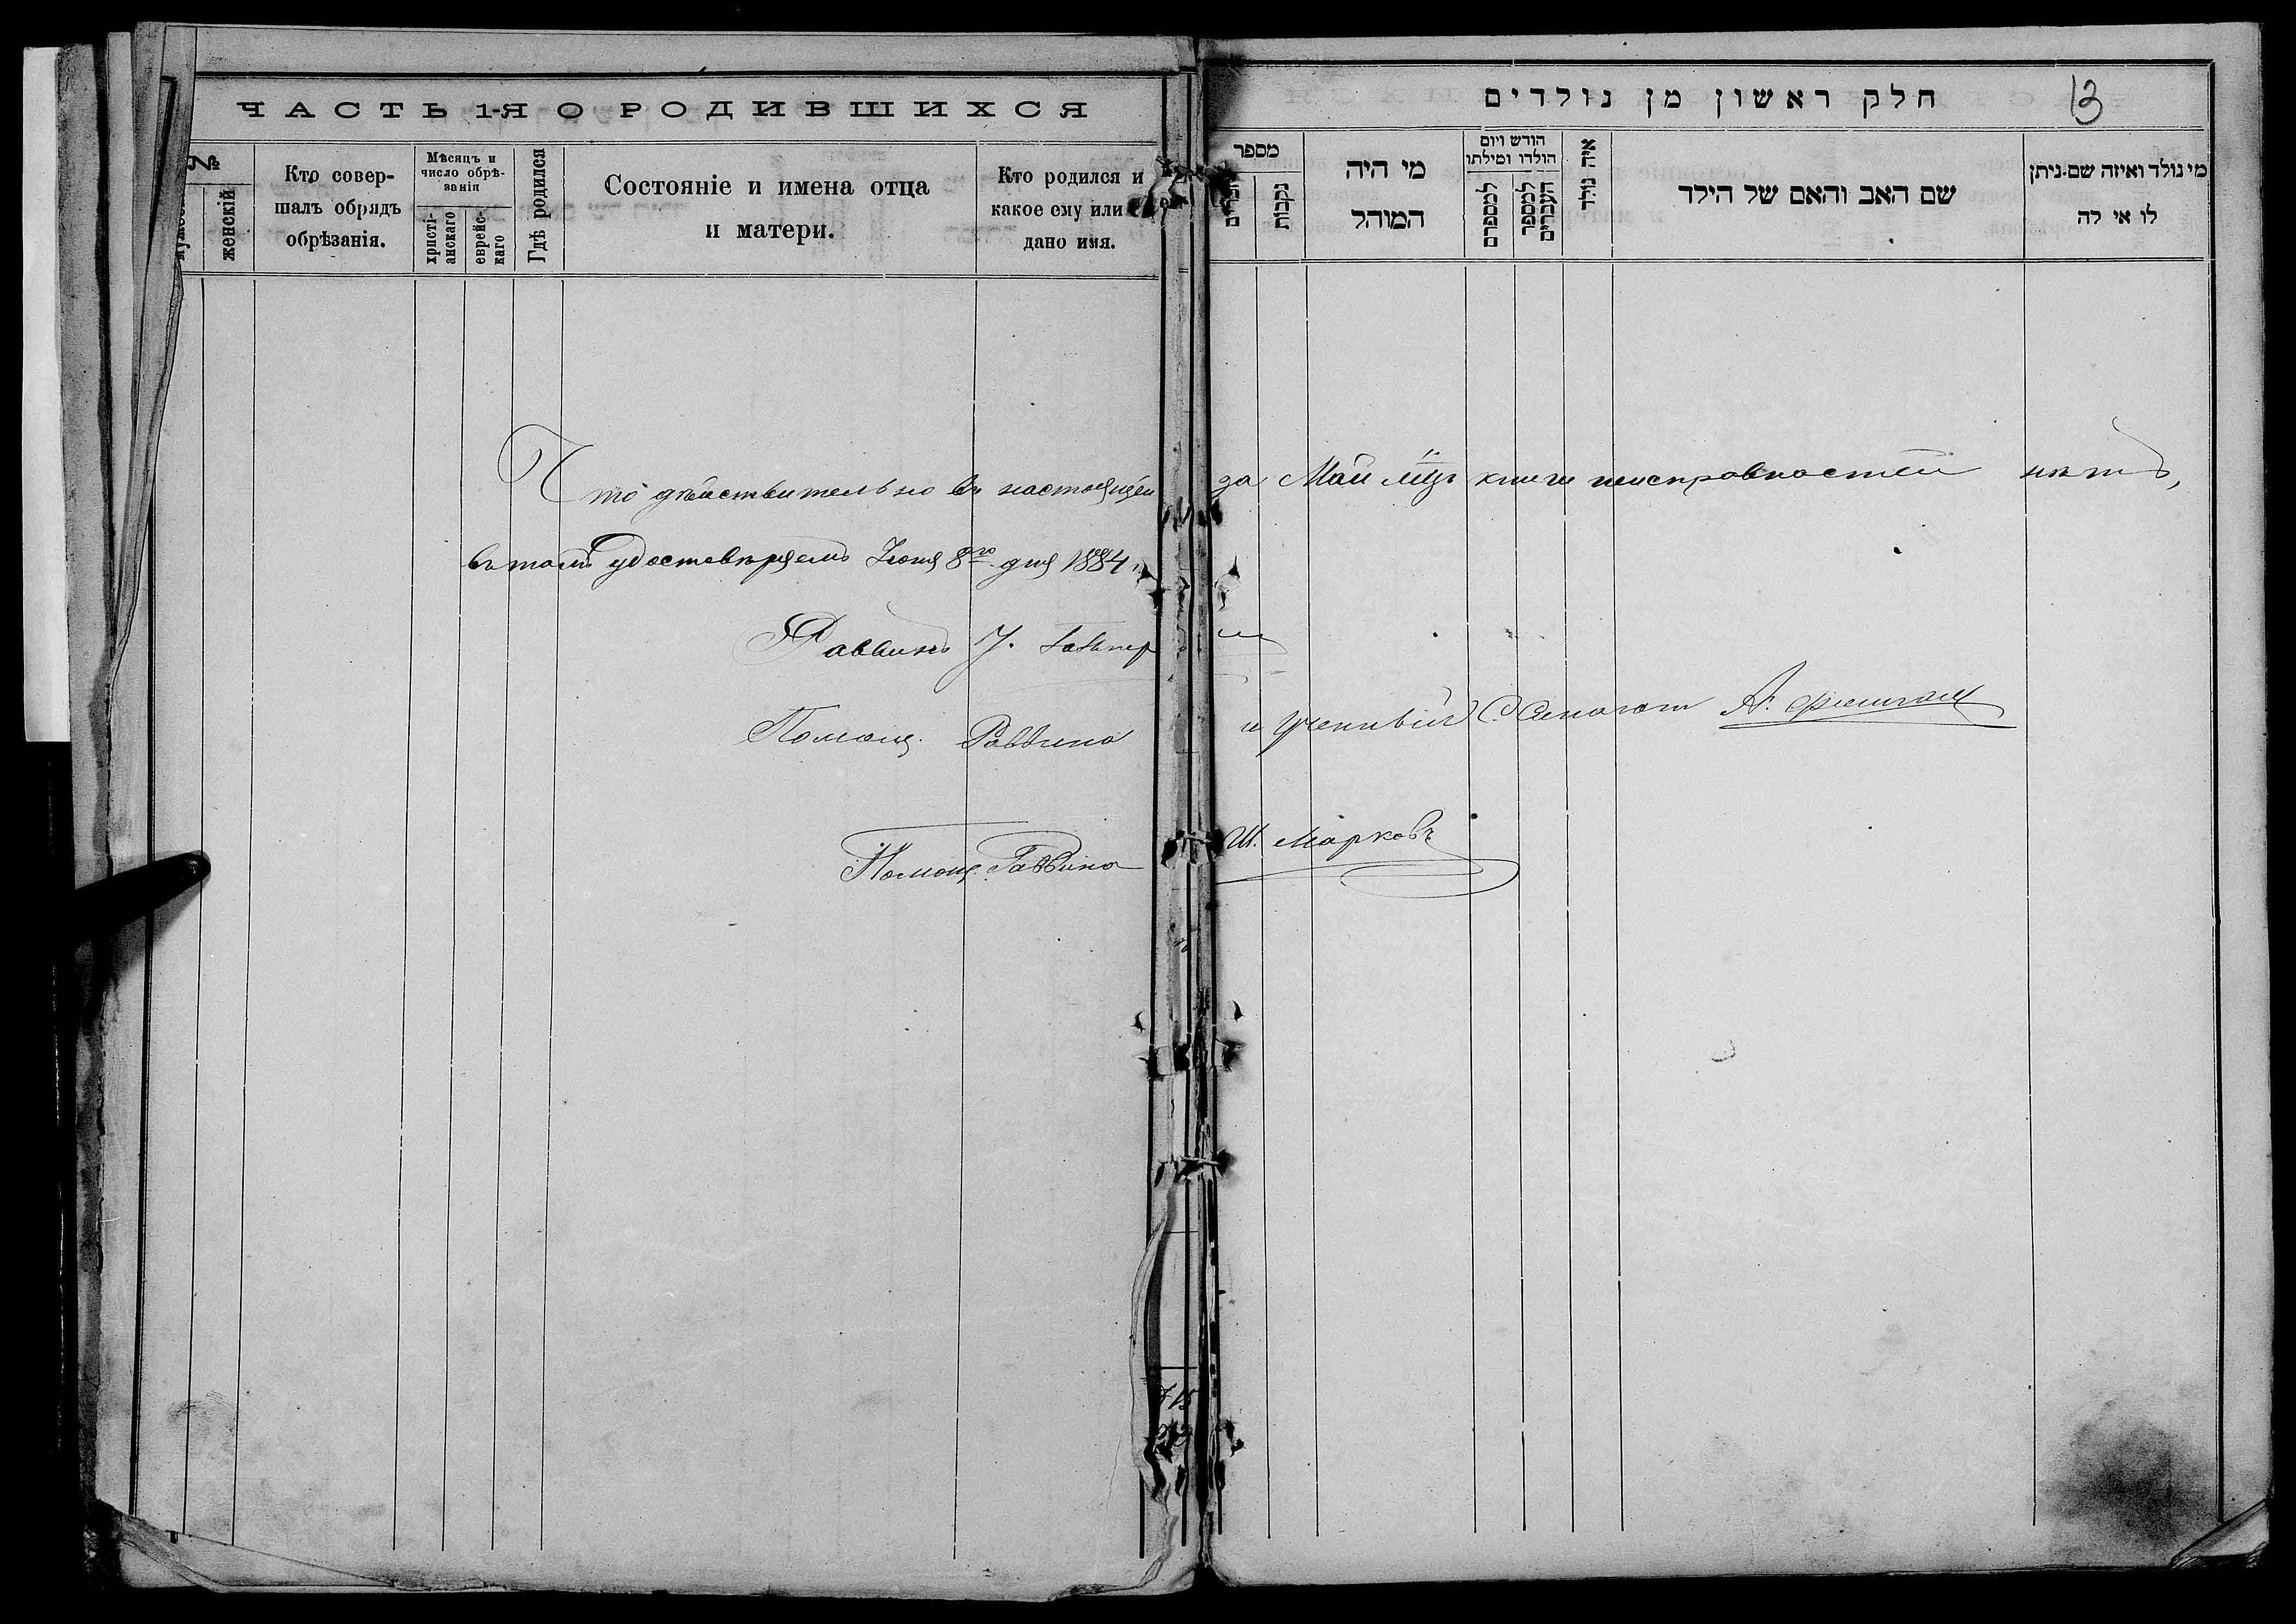 ЧАСТЬ 1-Я О РОДИВШИХСЯ
№
женскій
Кто совер-
шалъ обрядъ
обрѣзанія.
Мѣсяцъ и
число обрѣ-
занія
христі-
анскаго
еврейс-
каго
Гдѣ родился
Состояніе и имена отца
и матери.
Кто родился и
какое ему или
дано имя.
חלק ראשון מן נולדים
13
מספר
נקבות
מי היה
המוהל
חודש ויום
הולדו ומילתו
למספרם
למספר
העברים
איה נולד
שם האב והאם של הילד
מי נולד ואיזה שם ניתן
לו אי לה
Что дѣйствительно въ настоящей за Май мцъ книги неисправностей нѣтъ,
въ томъ удостовѣряемъ Іюня 8го дня 1884
Раввинъ
Помощ. Раввина и ученый А. Фишман
Помощ. Раввина Ш. Марковъ